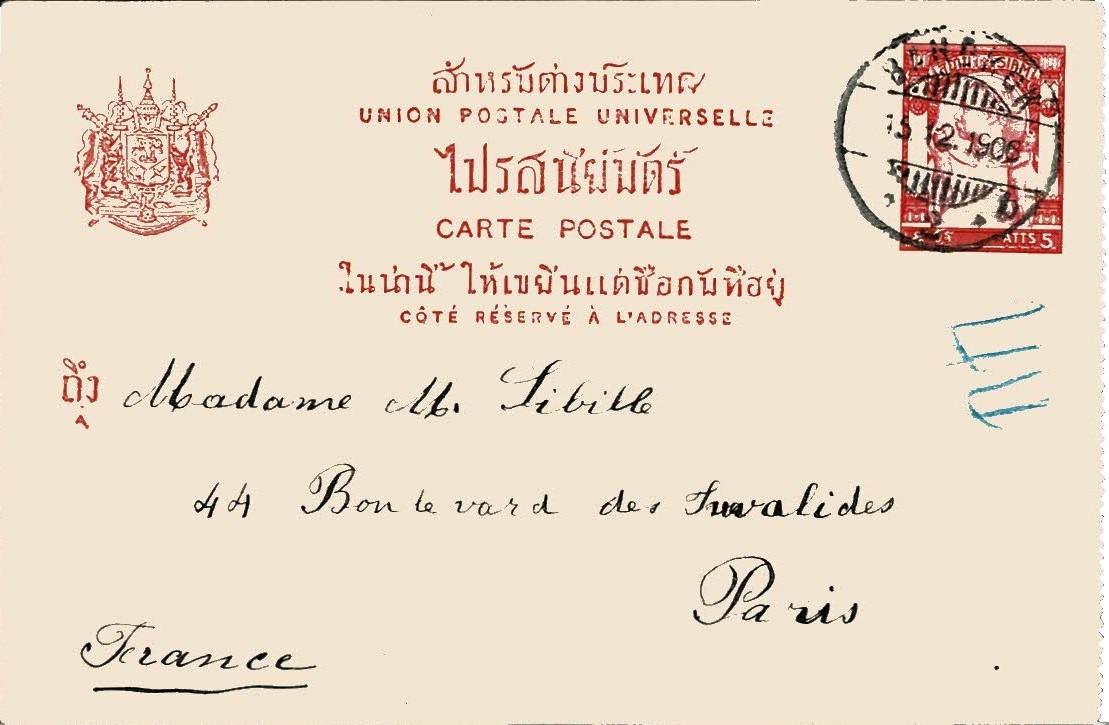 สำหรับต่างประเทศ
UNION POSTALE UNIVERSELLE
ไปรสนียบัตร์
CARTE POSTALE
ในน่านี้ ให้เขียนแต่ชื่อกับที่อยู่
CÔTÉ RÉSERVÉ À L'ADRESSE
BANGKOK
15.12.1906
2 D
ATTS 5
ถึง
A
Madame M. Sibille
44 Boulevard des Invalides
Paris
France